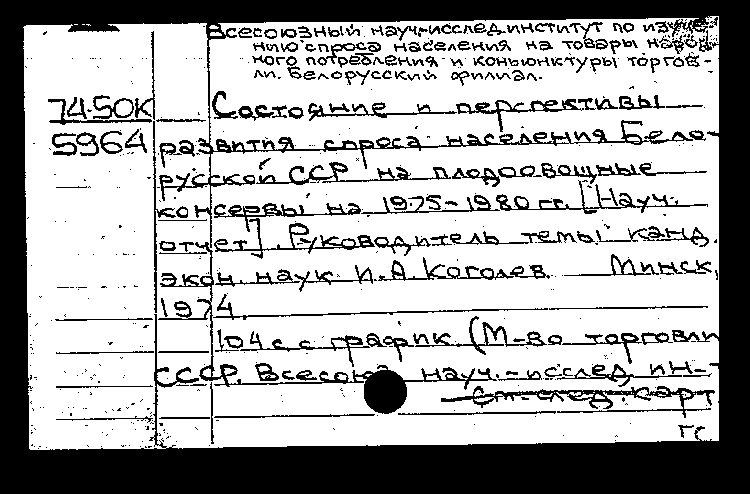 Всесоюзный науч-исслед. институт по изуче-
нию спроса населения на товары народ-
ного потребления и конъюнктуры торгов-
ли. Белорусский филиал.
74-50К Состояние и перспективы
5964 развития спроса населения Бело-
русской ССР на плодоовощные
консервы на 1975-1980 гг. [Науч.
отчет]. Руководитель темы канд.
экон. наук И.А. Коголев. Минск,
1974.
104 с. с график. (М-во торговли
СССР. Всесоюз. науч.-исслед. ин-т
См. след. карт.
ГС